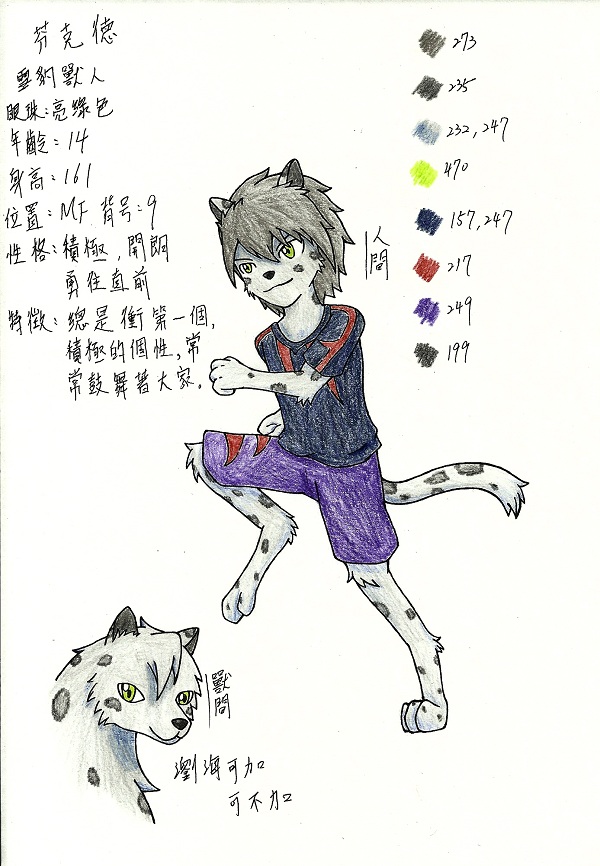 芬克德
雪豹獸人
眼珠:亮綠色
年齡:14
身高:161
位置:MF 背号:9
性格:積極,開朗
勇往直前
特徵:總是衝第一個,
積極的個性,常
常鼓舞著大家.
273
235
232,247
470
157,247
217
249
199
人間
獸間
瀏海可加
可不加